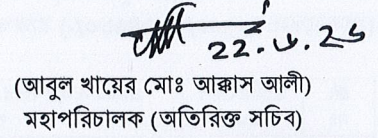 22.6.26
(আবুল খায়ের মোঃ আক্কাস আলী)
মহাপরিচালক (অতিরিক্ত সচিব)